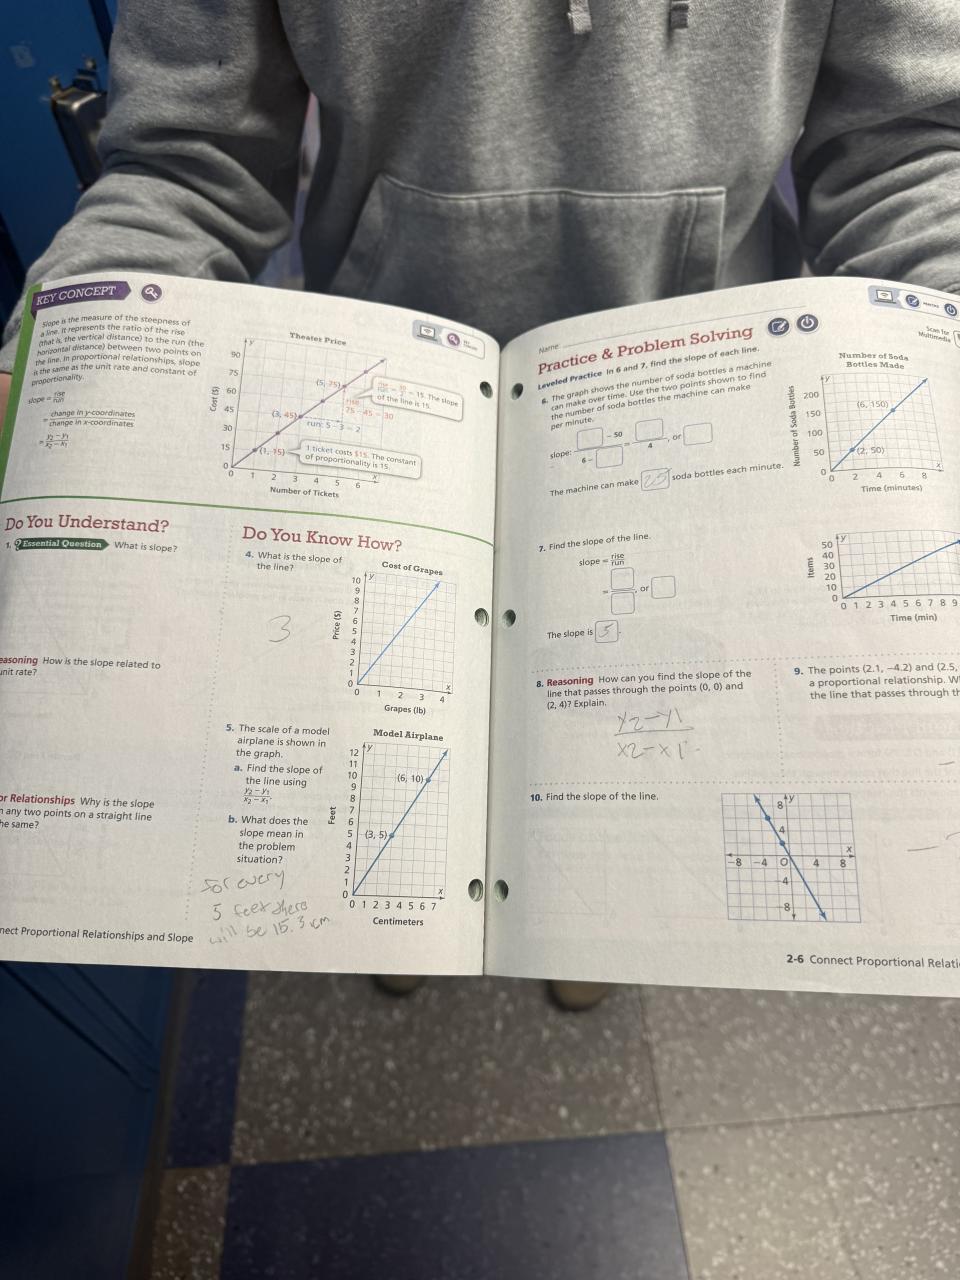 KEY CONCEPT
Slope is the measure of the steepness of
a line. It represents the ratio of the rise
(that is, the vertical distance) to the run (the
horizontal distance) between two points on
the line. In proportional relationships, slope
is the same as the unit rate and constant of
proportionality.
slope = rise
run
= change in y-coordinates
change in x-coordinates
= y₂ − y₁
x₂ − x₁
Theater Price
y
90
75
60
45
30
15
0
Cost ($)
(5, 75)
(3, 45)
(1, 15)
= 15. The slope
of the line is 15.
rise:
75 − 45 = 30
run: 5 − 3 = 2
1 ticket costs $15. The constant
of proportionality is 15.
1 2 3 4 5 6
x
Number of Tickets
Do You Understand?
1. Essential Question What is slope?
easoning How is the slope related to
unit rate?
or Relationships Why is the slope
any two points on a straight line
he same?
Do You Know How?
4. What is the slope of
the line?
3
Cost of Grapes
y
10
9
8
7
6
5
4
3
2
1
0
Price ($)
0 1 2 3 4
x
Grapes (lb)
5. The scale of a model
airplane is shown in
the graph.
a. Find the slope of
the line using
y₂ − y₁
x₂ − x₁.
b. What does the
slope mean in
the problem
situation?
for every
5 feet there
will be 15.3 cm
Model Airplane
y
12
11
10
9
8
7
6
5
4
3
2
1
0
Feet
(6, 10)
(3, 5)
0 1 2 3 4 5 6 7
x
Centimeters
nect Proportional Relationships and Slope
Name:
Practice & Problem Solving
Scan for
Multimedia
Leveled Practice In 6 and 7, find the slope of each line.
6. The graph shows the number of soda bottles a machine
can make over time. Use the two points shown to find
the number of soda bottles the machine can make
per minute.
slope: − 50
6 −
=
4
, or
The machine can make 25 soda bottles each minute.
Number of Soda
Bottles Made
y
200
150
100
50
0
Number of Soda Bottles
(6, 150)
(2, 50)
0 2 4 6 8
x
Time (minutes)
7. Find the slope of the line.
slope = rise
run
= , or
The slope is 5.
y
50
40
30
20
10
0
Items
0 1 2 3 4 5 6 7 8 9
Time (min)
8. Reasoning How can you find the slope of the
line that passes through the points (0, 0) and
(2, 4)? Explain.
y2−y1
x2−x1
9. The points (2.1, −4.2) and (2.5,
a proportional relationship. W
the line that passes through th
10. Find the slope of the line.
8 y
4
−8 −4 O 4 8
x
−4
−8
2-6 Connect Proportional Relati